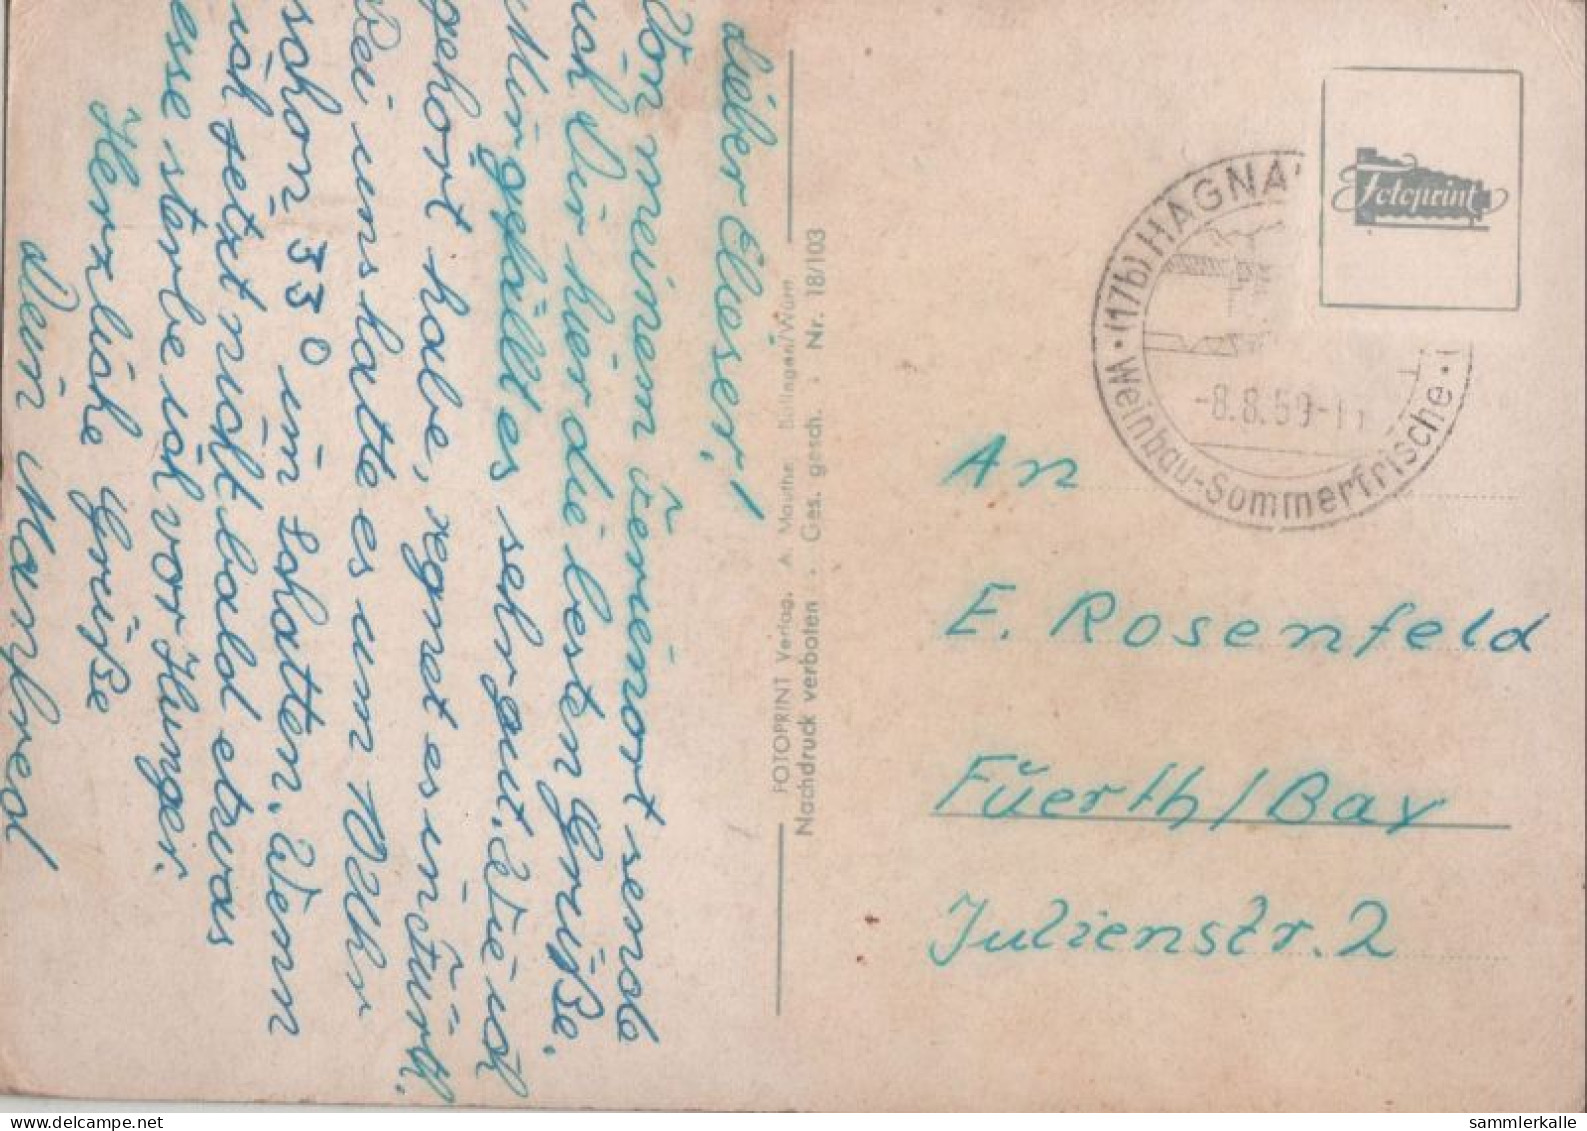 Lieber Elieser!
Von meinem Ferienort sende
ich Dir hier die besten Grüße.
Mir gefällt es sehr gut. Wie ich
gehört habe, regnet es in Fürth.
Bei uns hatte es um 10 Uhr
schon 33° im Schatten. Wenn
ich jetzt nicht bald etwas
esse sterbe ich vor Hunger.
Herzliche Grüße
Dein Manfred
FOTOPRINT Verlag, A. Mauthe,
Nachdruck verboten · Ges. gesch. · Nr. 18/103
(17b) HAGNA
Weinbau-Sommerfrische
-8.8.59-11
Fotoprint
An
E. Rosenfeld
Füerth/Bay
Julienstr. 2
sammlerkalle